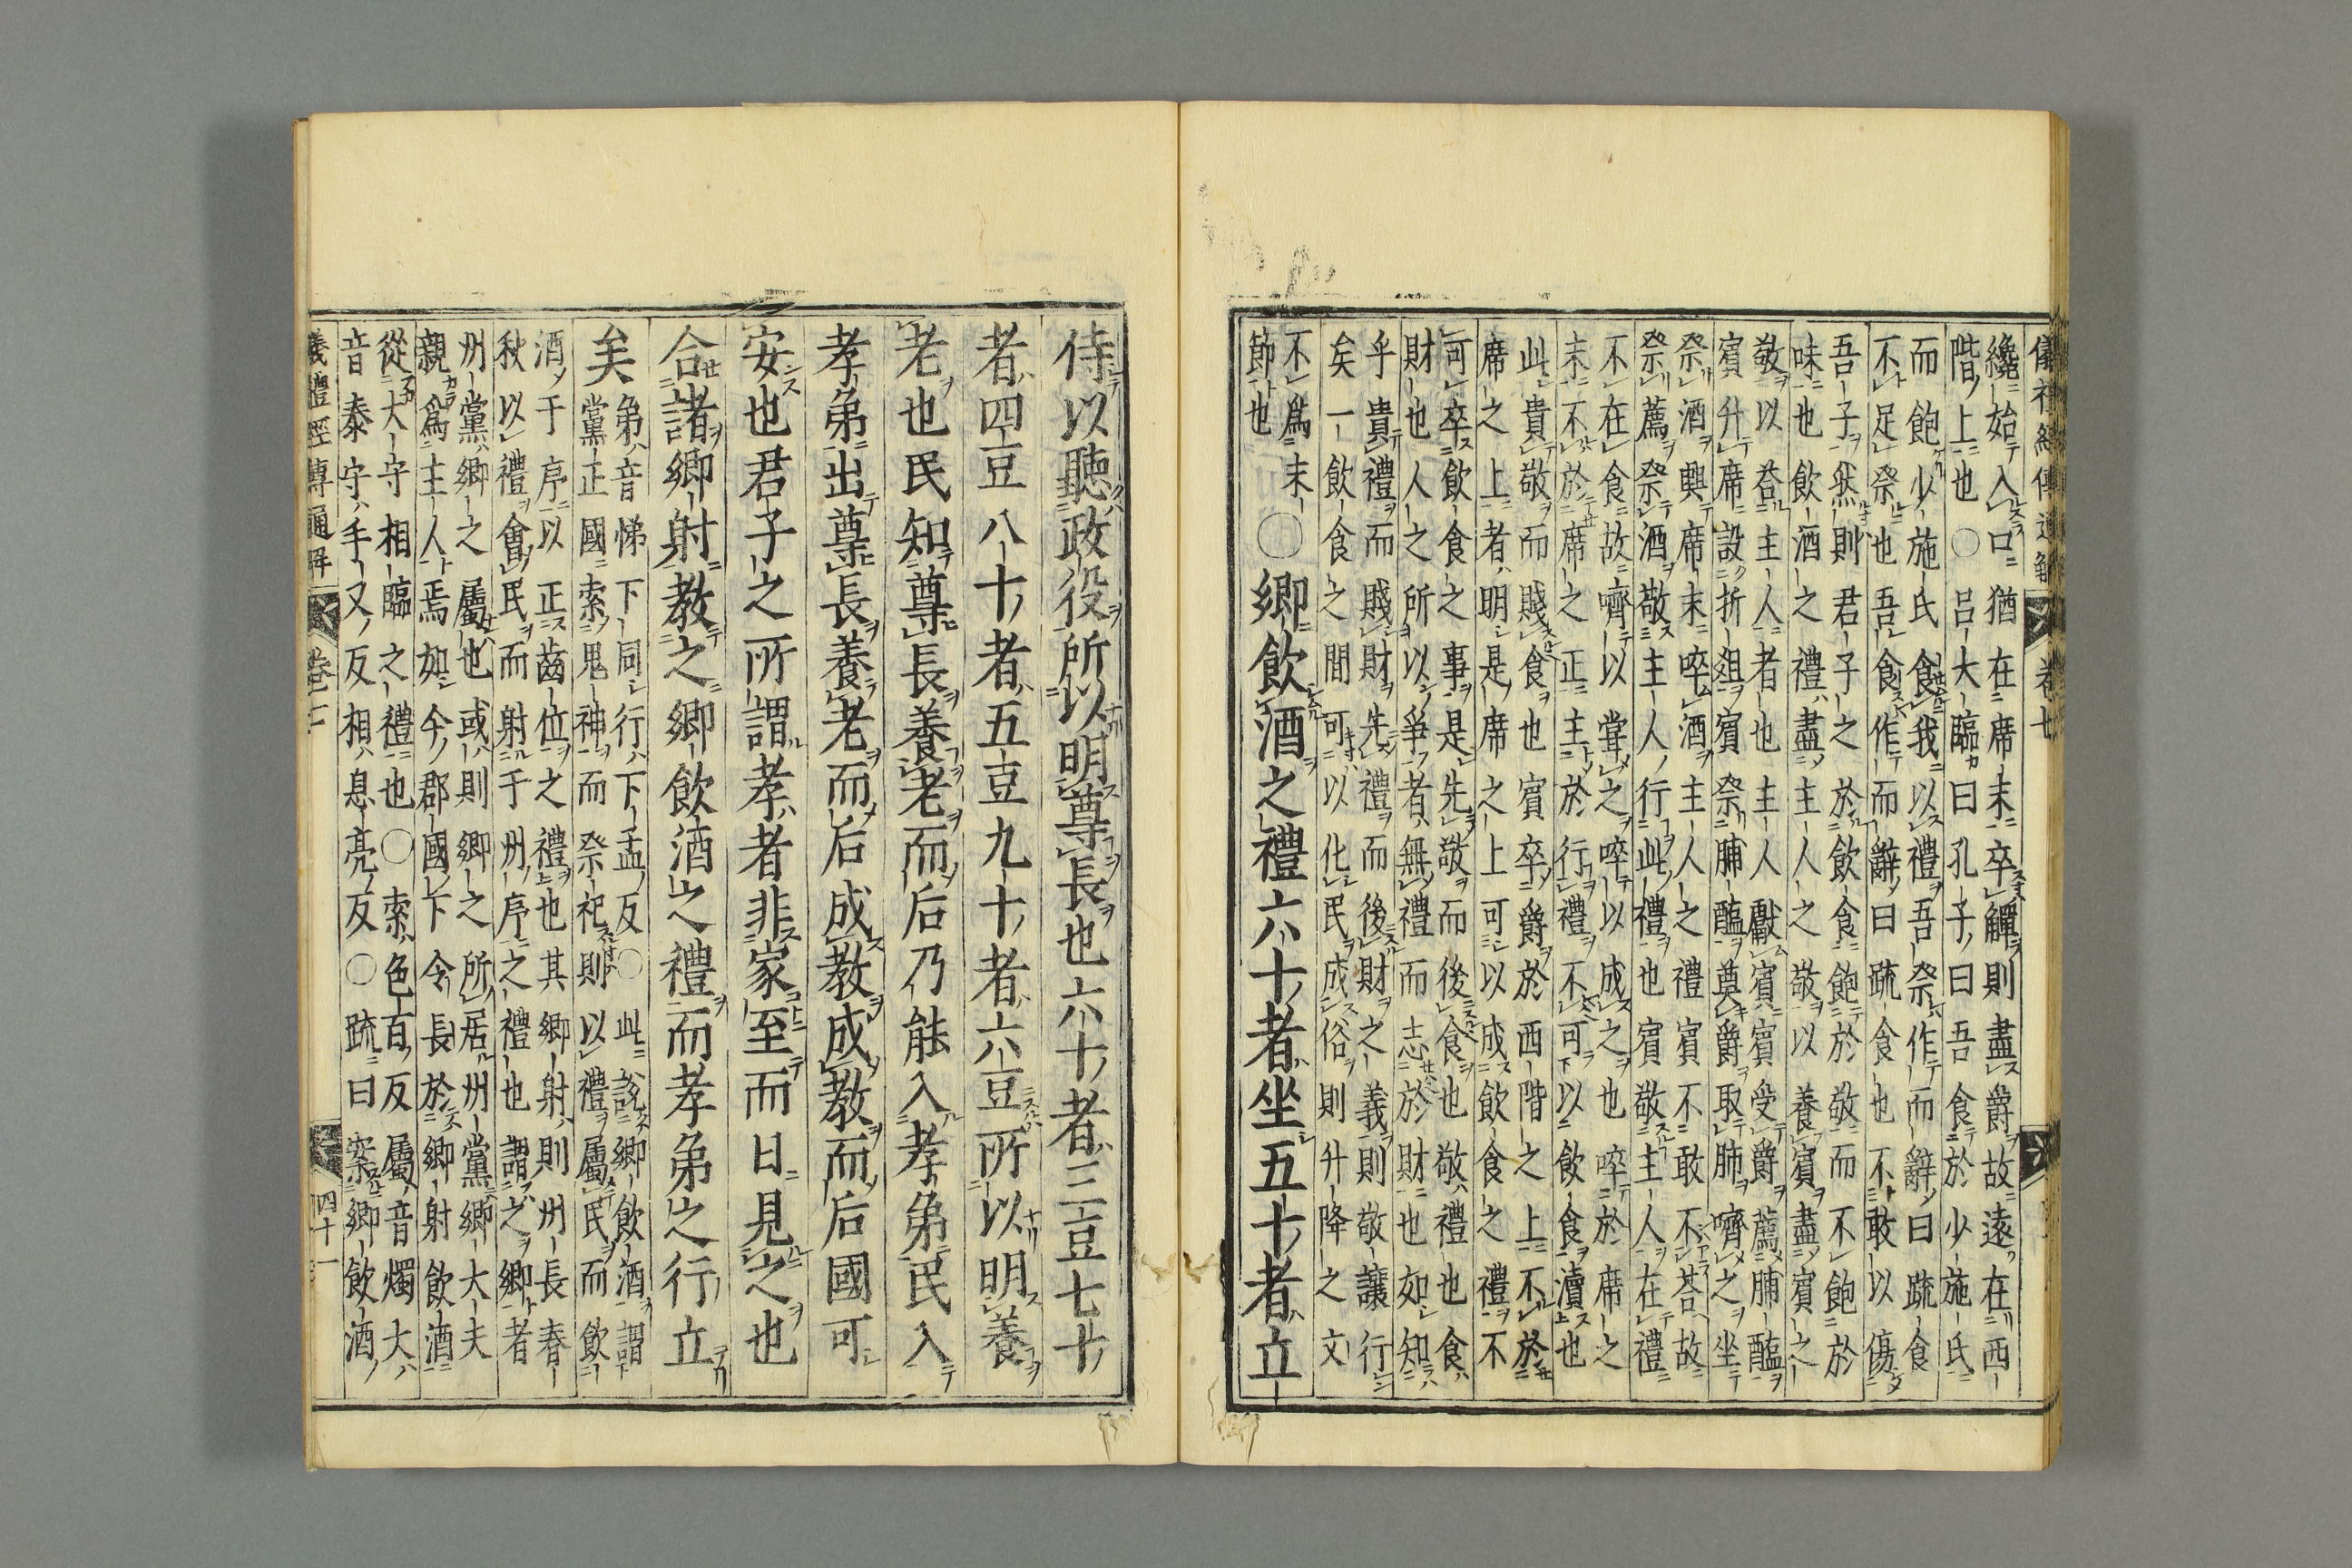 儀禮經傳通解 卷七
纔始入口猶在席末卒觶則盡爵故遠在西
階上也〇呂大臨曰孔子曰吾食於少施氏
而飽少施氏食我以禮吾祭作而辭曰疏食
不足祭也吾食作而辭曰疏食也不敢以傷
吾子然則君子之於飲食飽於敬而不飽於
味也飲酒之禮盡主人之敬以養賓盡賓之
敬以荅主人者也主人獻賓賓受爵薦脯醢
賓升席設折俎賓祭脯醢奠爵取肺嚌之坐
祭酒興席末啐酒主人之禮賓不敢不荅故
祭薦祭酒敬主人行此禮也賓敬主人在禮
不在食故嚌以甞之啐以成之也啐於席之
末不於席之正主於行禮不可以飲食瀆也
此貴敬而賤食也賓卒爵於西階之上不於
席之上者明是席之上可以成飲食之禮不
可卒飲食之事是先敬而後食也敬禮也食
財也人之所以爭者無禮而志於財也如知
乎貴禮而賤財先禮而後財之義則敬讓行
矣一飲食之間可以化民成俗則升降之文
不爲末
節也
〇鄉飲酒之禮六十者坐五十者立
侍以聽政役所以明尊長也六十者三豆七十
者四豆八十者五豆九十者六豆所以明養
老也民知尊長養老而后乃能入孝弟民入
孝弟出尊長養老而后成教成教而后國可
安也君子之所謂孝者非家至而日見之也
合諸鄉射教之鄉飲酒之禮而孝弟之行立
矣
弟音悌下同行下孟反〇此說鄉飲酒謂
黨正國索鬼神而祭祀則以禮屬民而飲
酒于序以正齒位之禮也其鄉射則州長春
秋以禮會民而射于州序之禮也謂之鄉者
州黨鄉之屬也或則鄉之所居州黨鄉大夫
親爲主人焉如今郡國下令長於鄉射飲酒
從大守相臨之禮也〇索色百反屬音燭大
音泰守手又反相息亮反〇疏曰案鄉飲酒
儀禮經傳通解 卷七 四十一